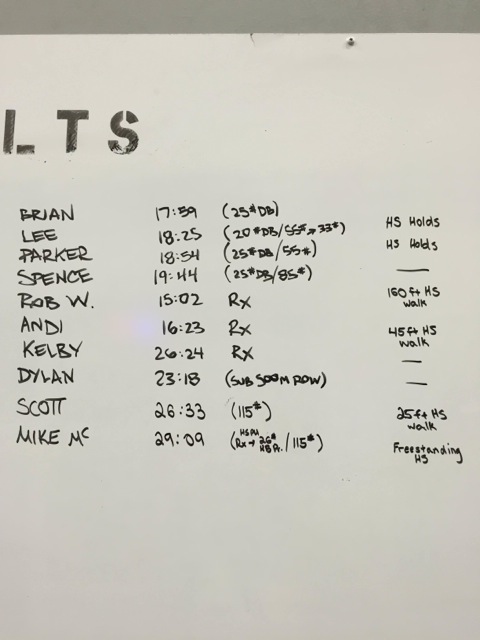 LTS
BRIAN 17:59 (25# DB)
LEE 18:25 (20# DB/55# → 33#) HS Holds
PARKER 18:54 (25# DB/55#) HS Holds
SPENCE 19:44 (25# DB/85#) —
ROB W. 15:02 Rx 150 ft HS walk
ANDI 16:23 Rx 45 ft HS walk
KELBY 26:24 Rx —
DYLAN 23:18 (SUB 500M ROW) —
SCOTT 26:33 (115#) 25 ft HS walk
MIKE Mc 29:09 (HSPU Rx → 26# /115#) Freestanding HS